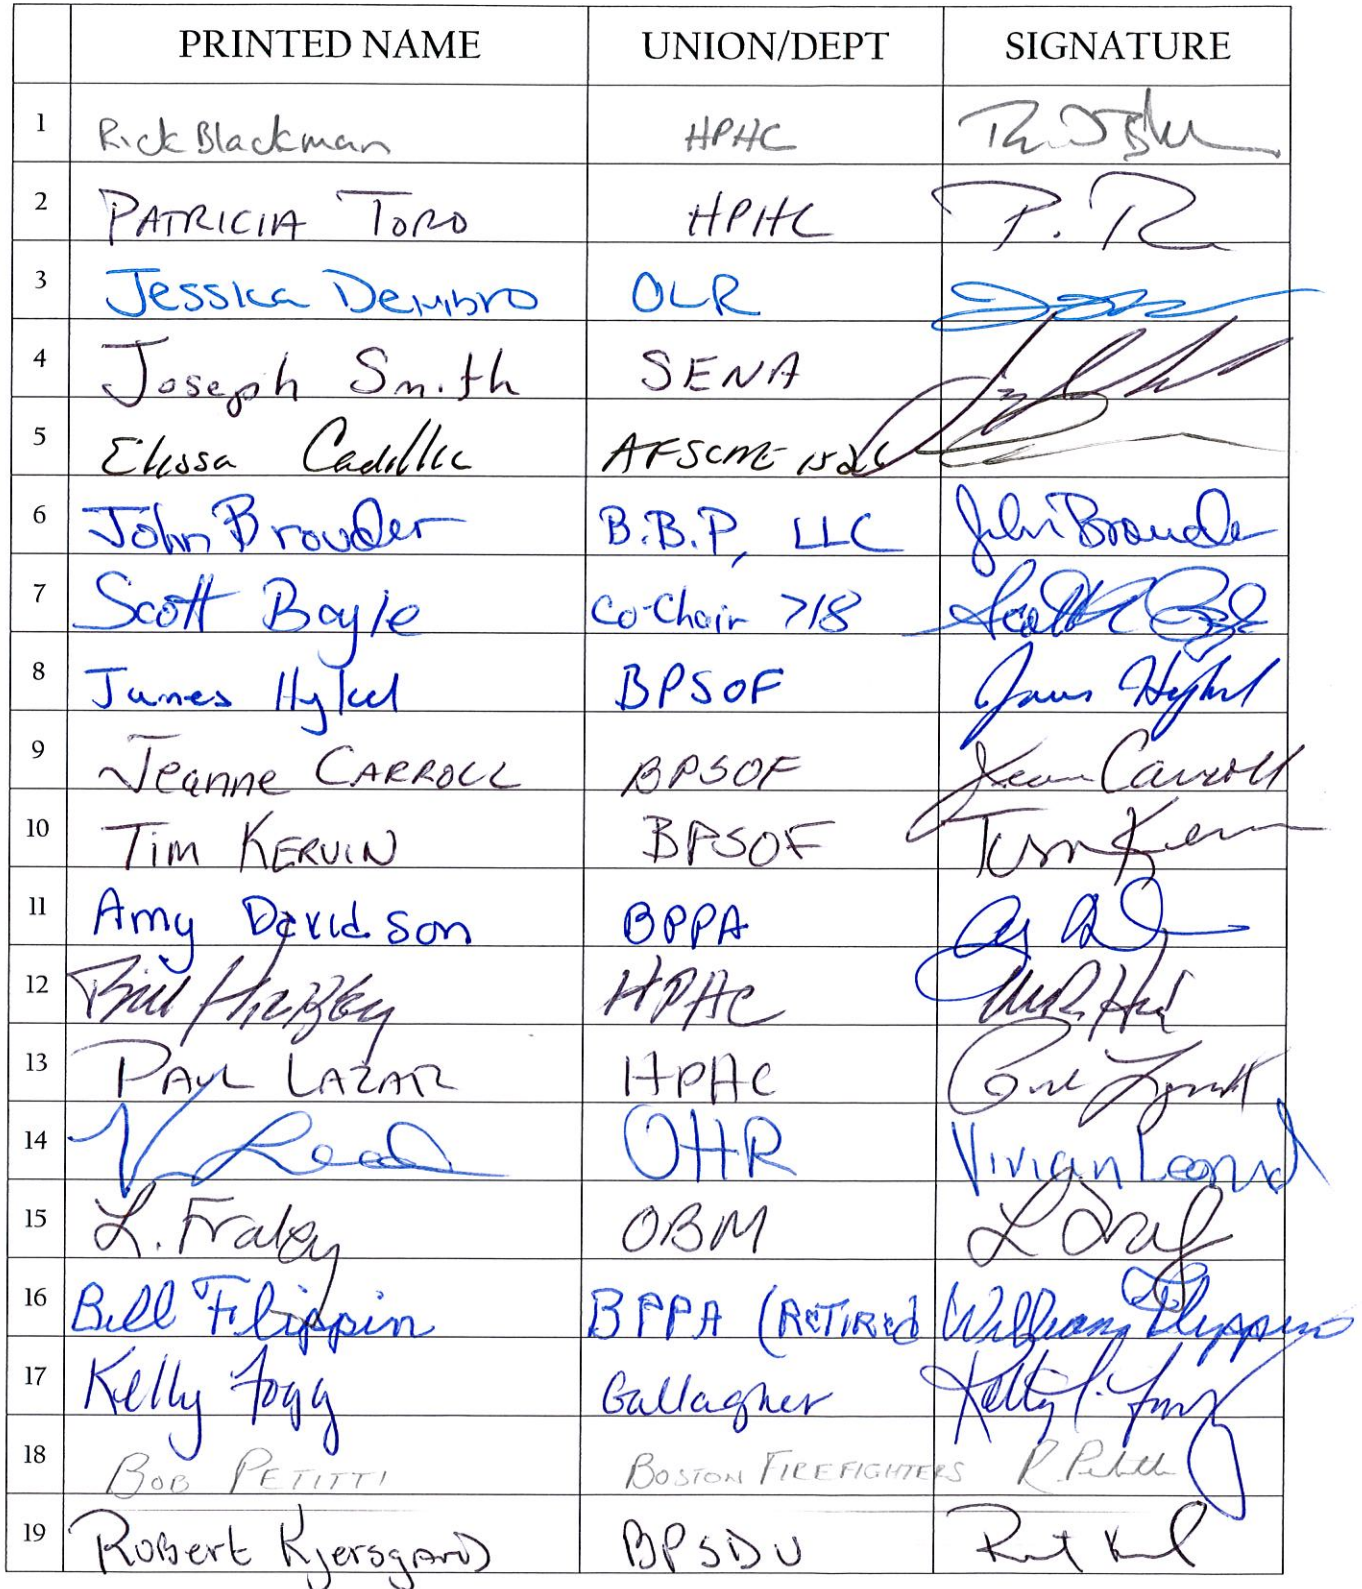 PRINTED NAME UNION/DEPT SIGNATURE
1 Rick Blackman HPHC
2 PATRICIA TORO HPHC P. R
3 Jessica Dembro OLR
4 Joseph Smith SENA
5 Elissa Cadillic AFSCME 1526
6 John Browder B.B.P, LLC John Browder
7 Scott Boyle Co-Chair 718 Scott Boyle
8 James Hykel BPSOF James Hykel
9 Jeanne CARROLL BPSOF Jean Carroll
10 TIM KERVIN BPSOF Tim Ker
11 Amy Davidson BPPA
12 Bill HPHC
13 PAUL LAZAR HPHC Paul
14 V OHR Vivian Leonard
15 L. Fraley OBM L
16 Bill Flippin BPPA (RETIRED William Flippin
17 Kelly Fogg Gallagher Kelly
18 BOB PETITTI BOSTON FIREFIGHTERS R
19 Robert Kjersgard BPSDU